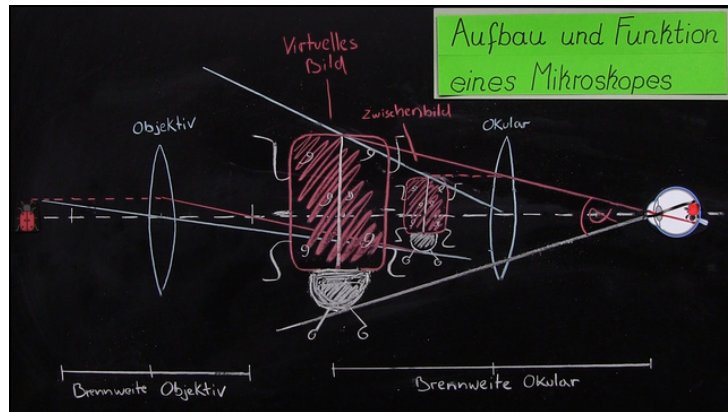 Aufbau und Funktion
eines Mikroskopes
Virtuelles
Bild
Zwischenbild
Objektiv
Okular
α
Brennweite Objektiv
Brennweite Okular